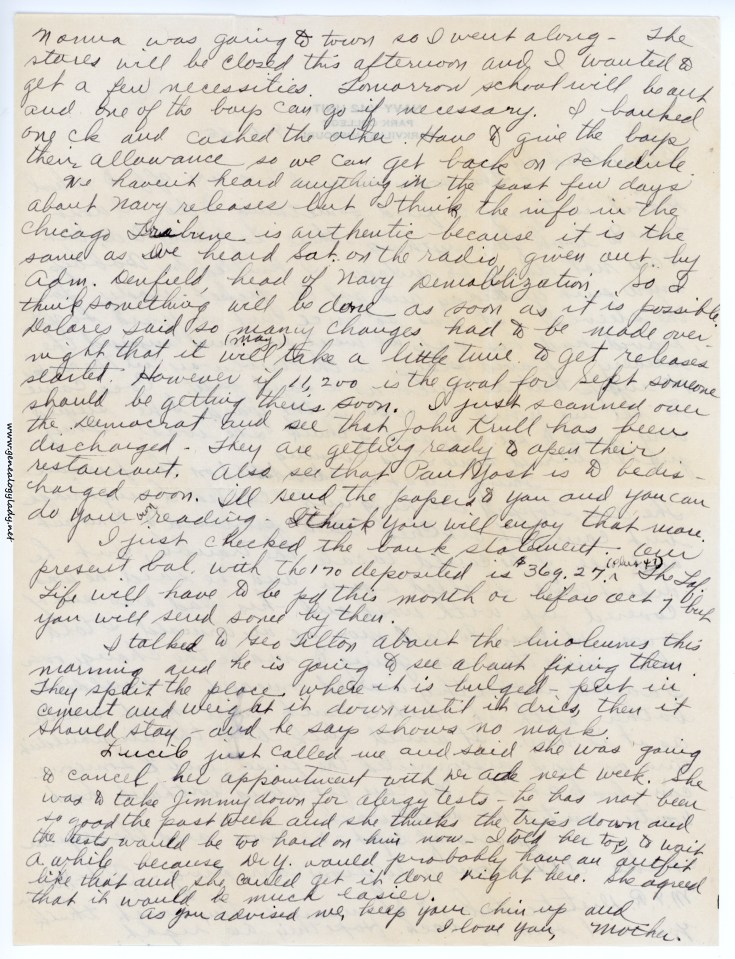 Mamma was going to town so I went along - The
stores will be closed this afternoon and I wanted to
get a few necessities. Tomorrow school will be out
and one of the boys can go if necessary. I banked
one ck and cashed the other. Have to give the boys
their allowance so we can get back on schedule
We haven't heard anything in the past few days
about Navy releases but I think the info in the
Chicago Tribune is authentic because it is the
same as we heard Sat. on the radio, given out by
Adm. Denfield, head of Navy Demobilization. So I
think something will be done as soon as it is possible.
Dolores said so many changes had to be made over-
night that it will (may) take a little time to get releases
started. However if 11,200 is the goal for Sept someone
should be getting theirs soon. I just scanned over
the Democrat and see that John Krull has been
discharged - They are getting ready to open their
restaurant. Also see that Paul Yost is to be dis-
charged soon. I'll send the papers to you and you can
do your own reading - I think you will enjoy that more.
I just checked the bank statement - Our
present bal. with the 170 deposited is $369.27. The
Life will have to be pd this month or before Oct 7 but
you will send some by then.
I talked to Geo Tilton about the linoleums this
morning and he is going to see about fixing them.
They split the place where it is bulged - put in
cement and weight it down until it dries, then it
should stay - and he says shows no mark.
Lucile just called me and said she was going
to cancel her appointment with next week. She
was to take Jimmy down for alergy tests - he has not been
so good the past week and she thinks the trips down and
the tests would be too hard on him now - I told her to wait
a while because Dr Y. would probably have an outfit
like that and she could get it done right here. She agreed
that it would be much easier.
As you advised me, keep your chin up and
I love you, Mother.
www.genealogylady.net